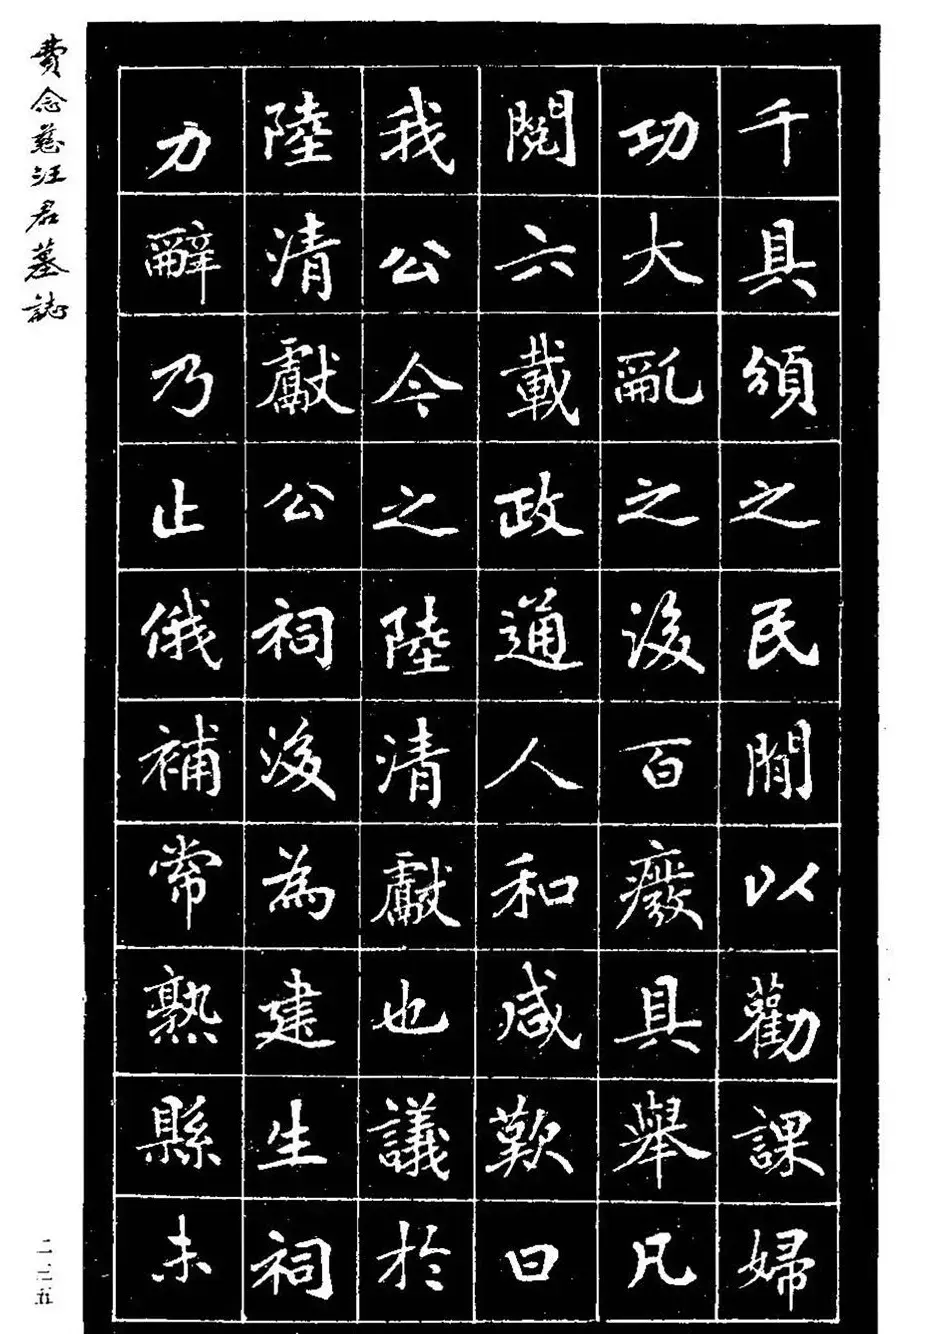 千具頒之民閒以勸課婦
功大亂之後百廢具舉凡
閱六載政通人和咸歎曰
我公今之陸清獻也議於
陸清獻公祠後為建生祠
力辭乃止俄補常熟縣未
費念慈汪君墓誌
二三五